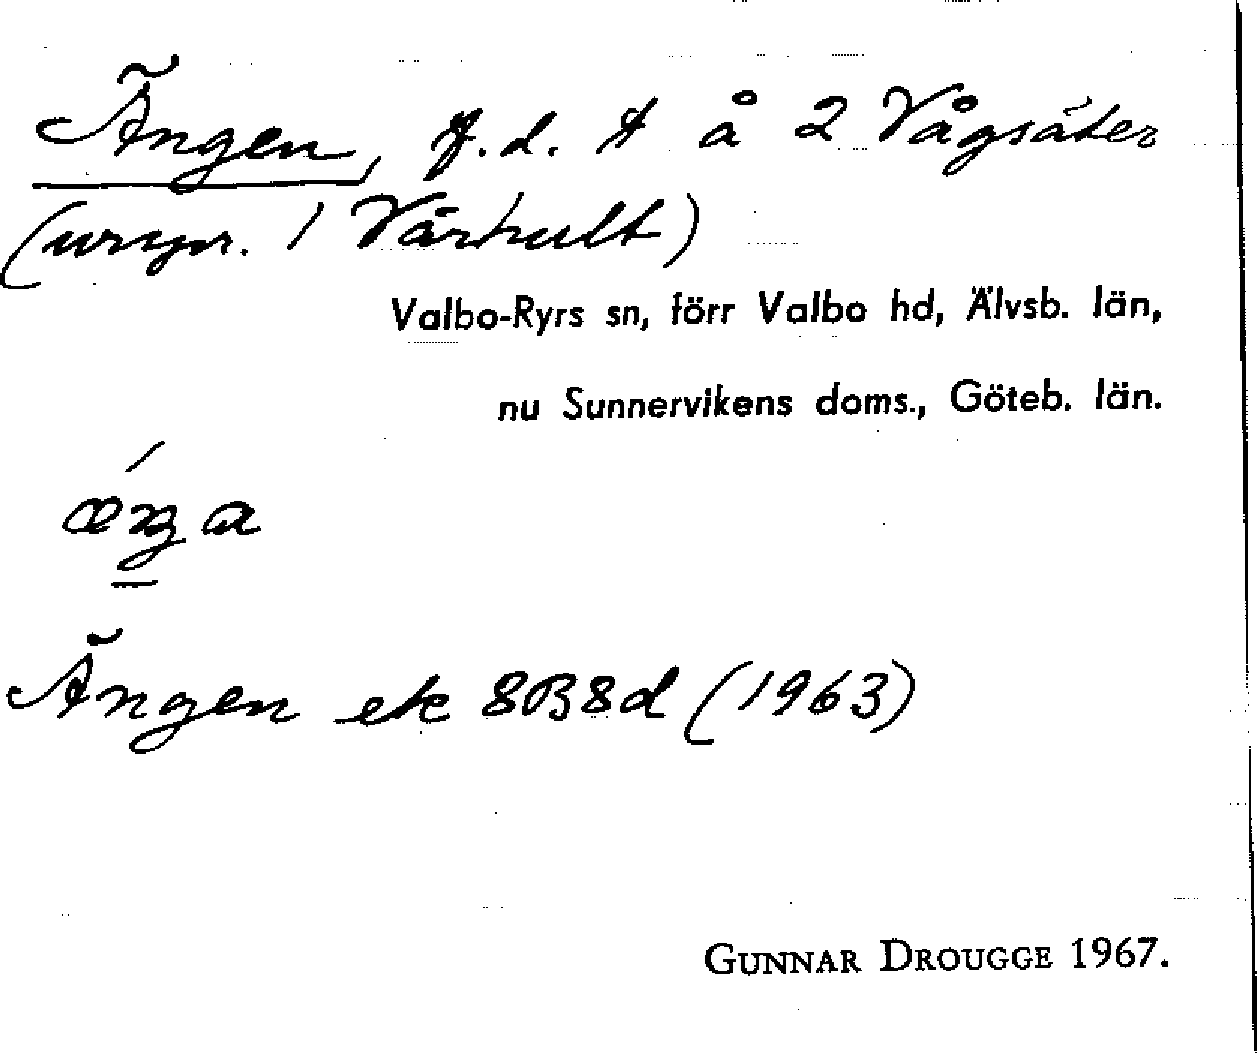 Ängen, f.d. t å 2 Vågsäter
(urspr. 1 Vårhult)
Valbo-Ryrs sn, förr Valbo hd, Älvsb. län,
nu Sunnervikens doms., Göteb. län.
Ängen ek 8B8d (1963)
GUNNAR DROUGGE 1967.